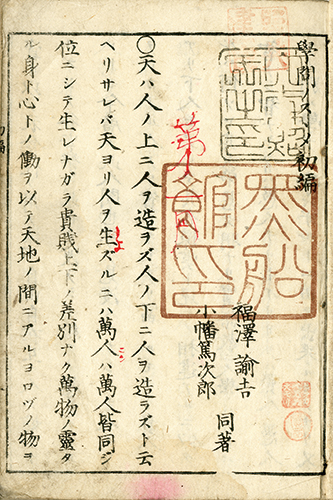 學問ノスヽメ 初編
福澤諭吉
小幡篤次郎 同著
〇天ハ人ノ上ニ人ヲ造ラズ人ノ下ニ人ヲ造ラズト云
ヘリサレバ天ヨリ人ヲ生ズルニハ萬人ハ萬人皆同ジ
位ニシテ生レナガラ貴賤上下ノ差別ナク萬物ノ靈タ
ル身ト心トノ働ヲ以テ天地ノ間ニアルヨロヅノ物ヲ
初編